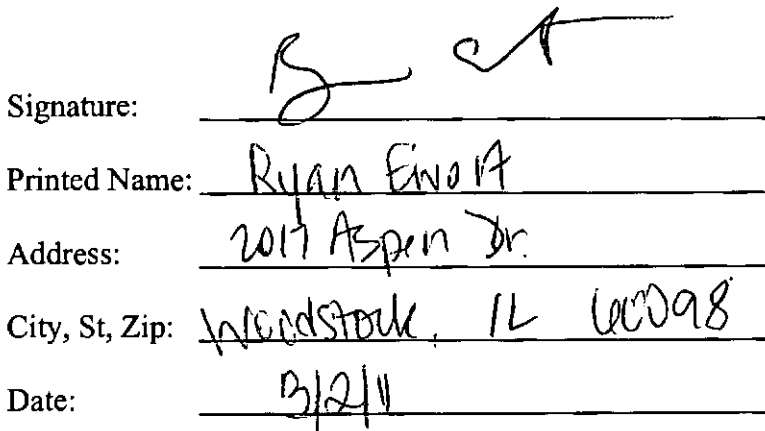 Signature:
Printed Name: Ryan
Address: 2017 Aspen Dr.
City, St, Zip: Woodstock, IL 60098
Date: 3/2/11